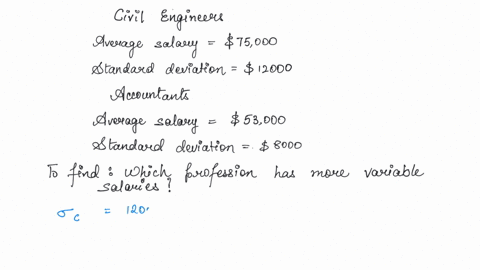 Civil Engineers
Average salary = $75,000
Standard deviation = $12000
Accountants
Average salary = $53,000
Standard deviation = $8000
To find : Which profession has more variable
salaries?
σc = 120